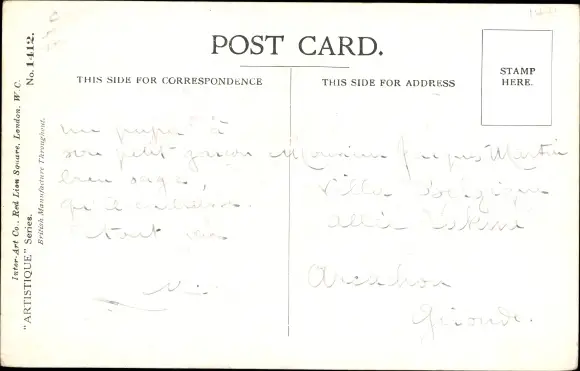 POST CARD.
THIS SIDE FOR CORRESPONDENCE
THIS SIDE FOR ADDRESS
STAMP
HERE.
Inter-Art Co., Red Lion Square, London, W.C.
"ARTISTIQUE" Series.
No. 1412.
British Manufacture Throughout.
un papa à
son petit garçon
bien sage,
qu'il
tout
Monsieur Jacques Martin
Villa
Allée
Arcachon
Gironde.